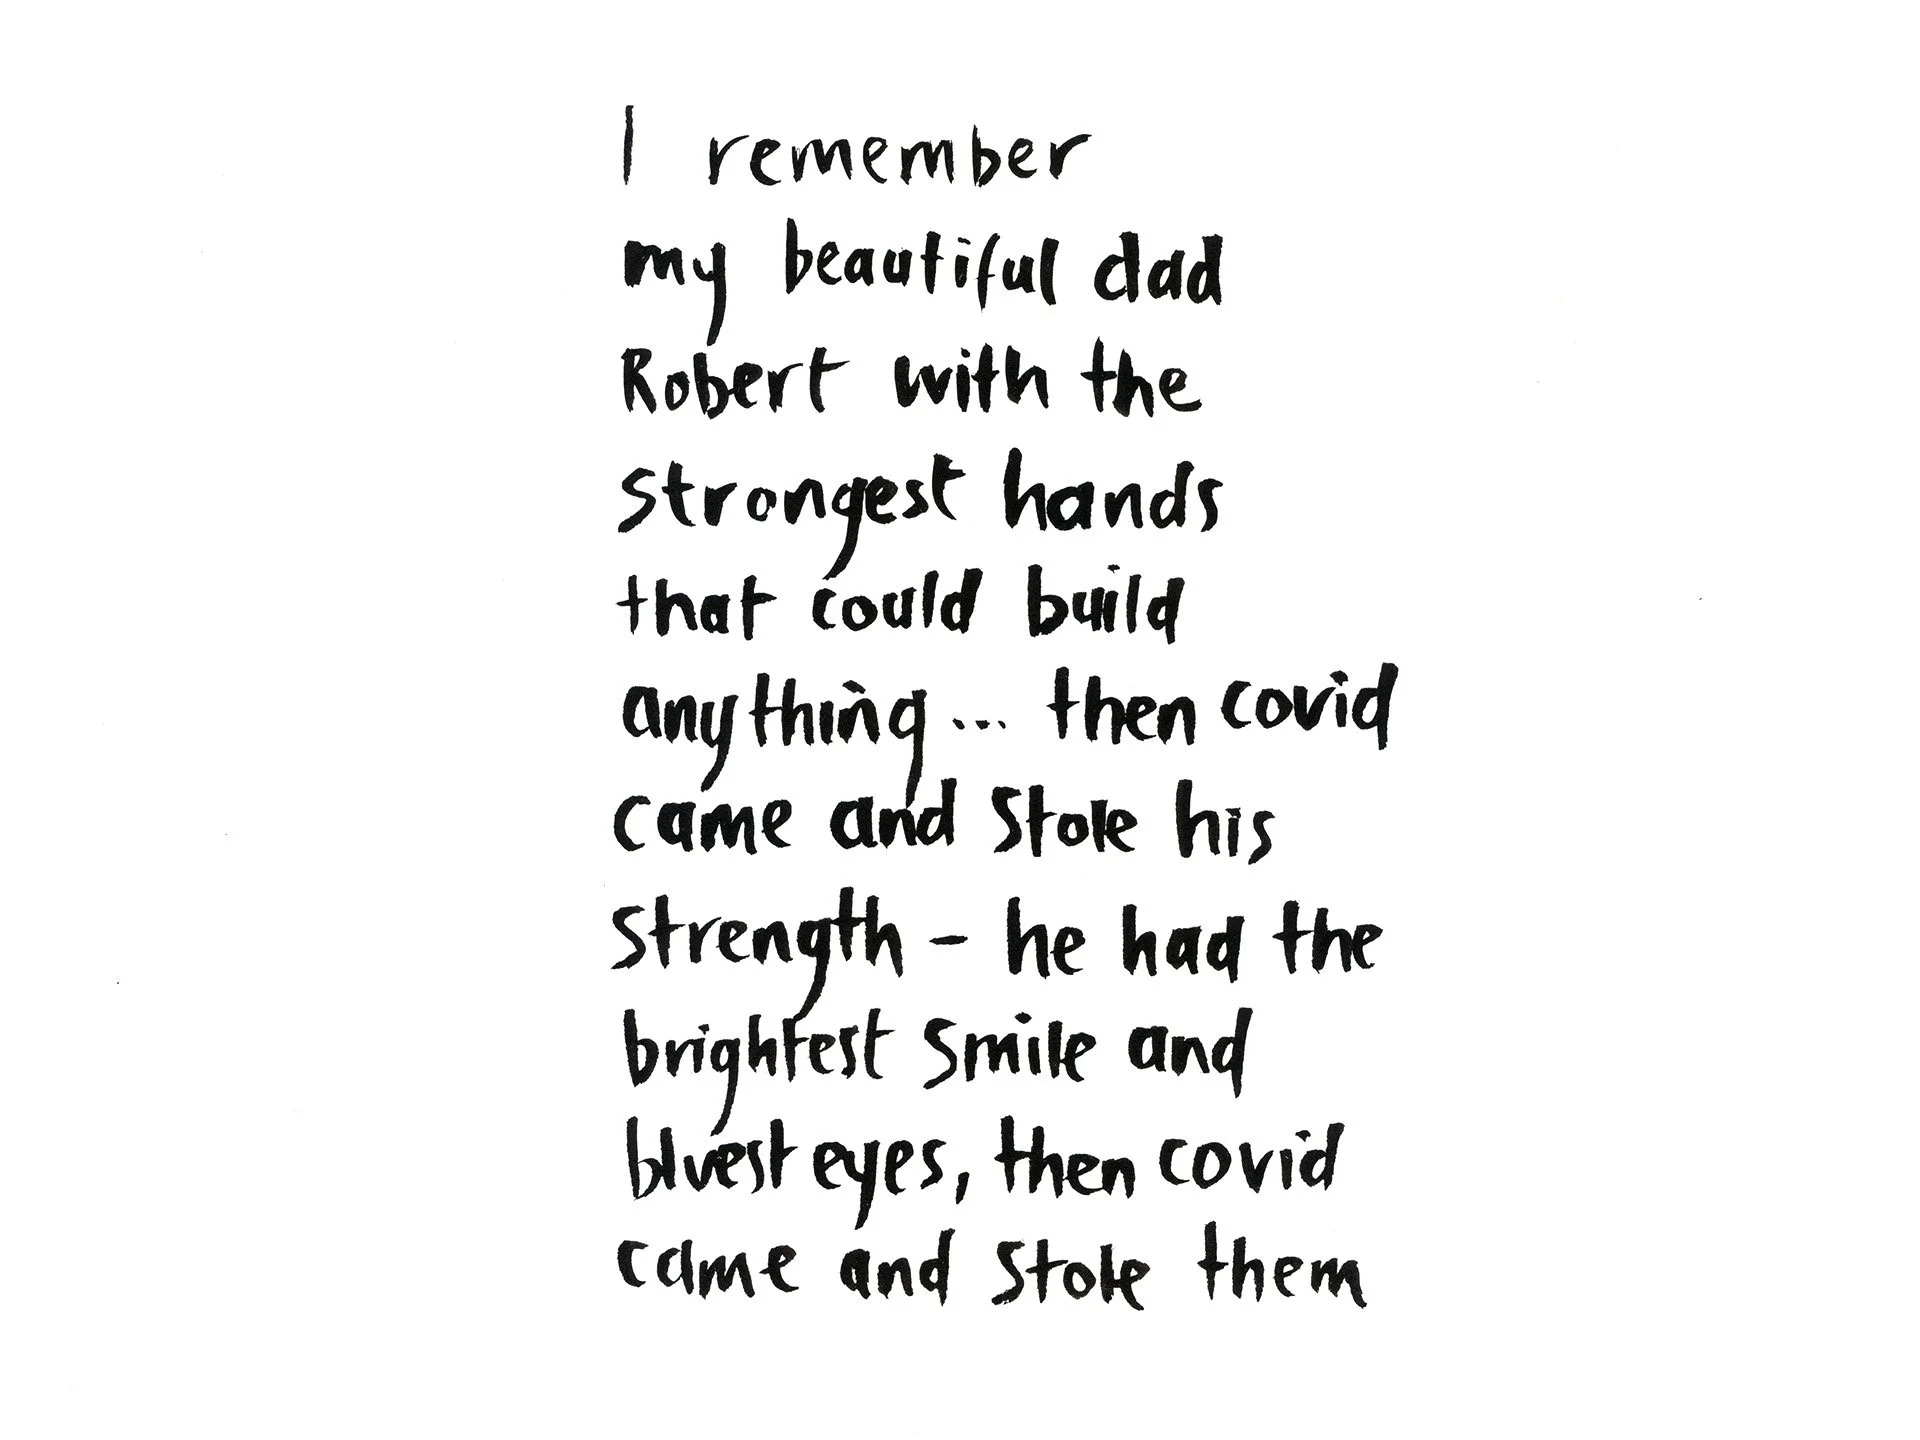 I remember
my beautiful dad
Robert with the
strongest hands
that could build
anything... then covid
came and stole his
strength - he had the
brightest smile and
bluest eyes, then covid
came and stole them